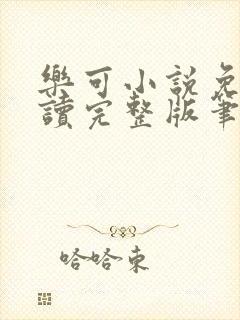 樂可小說免
讀完整版筆
哈哈東